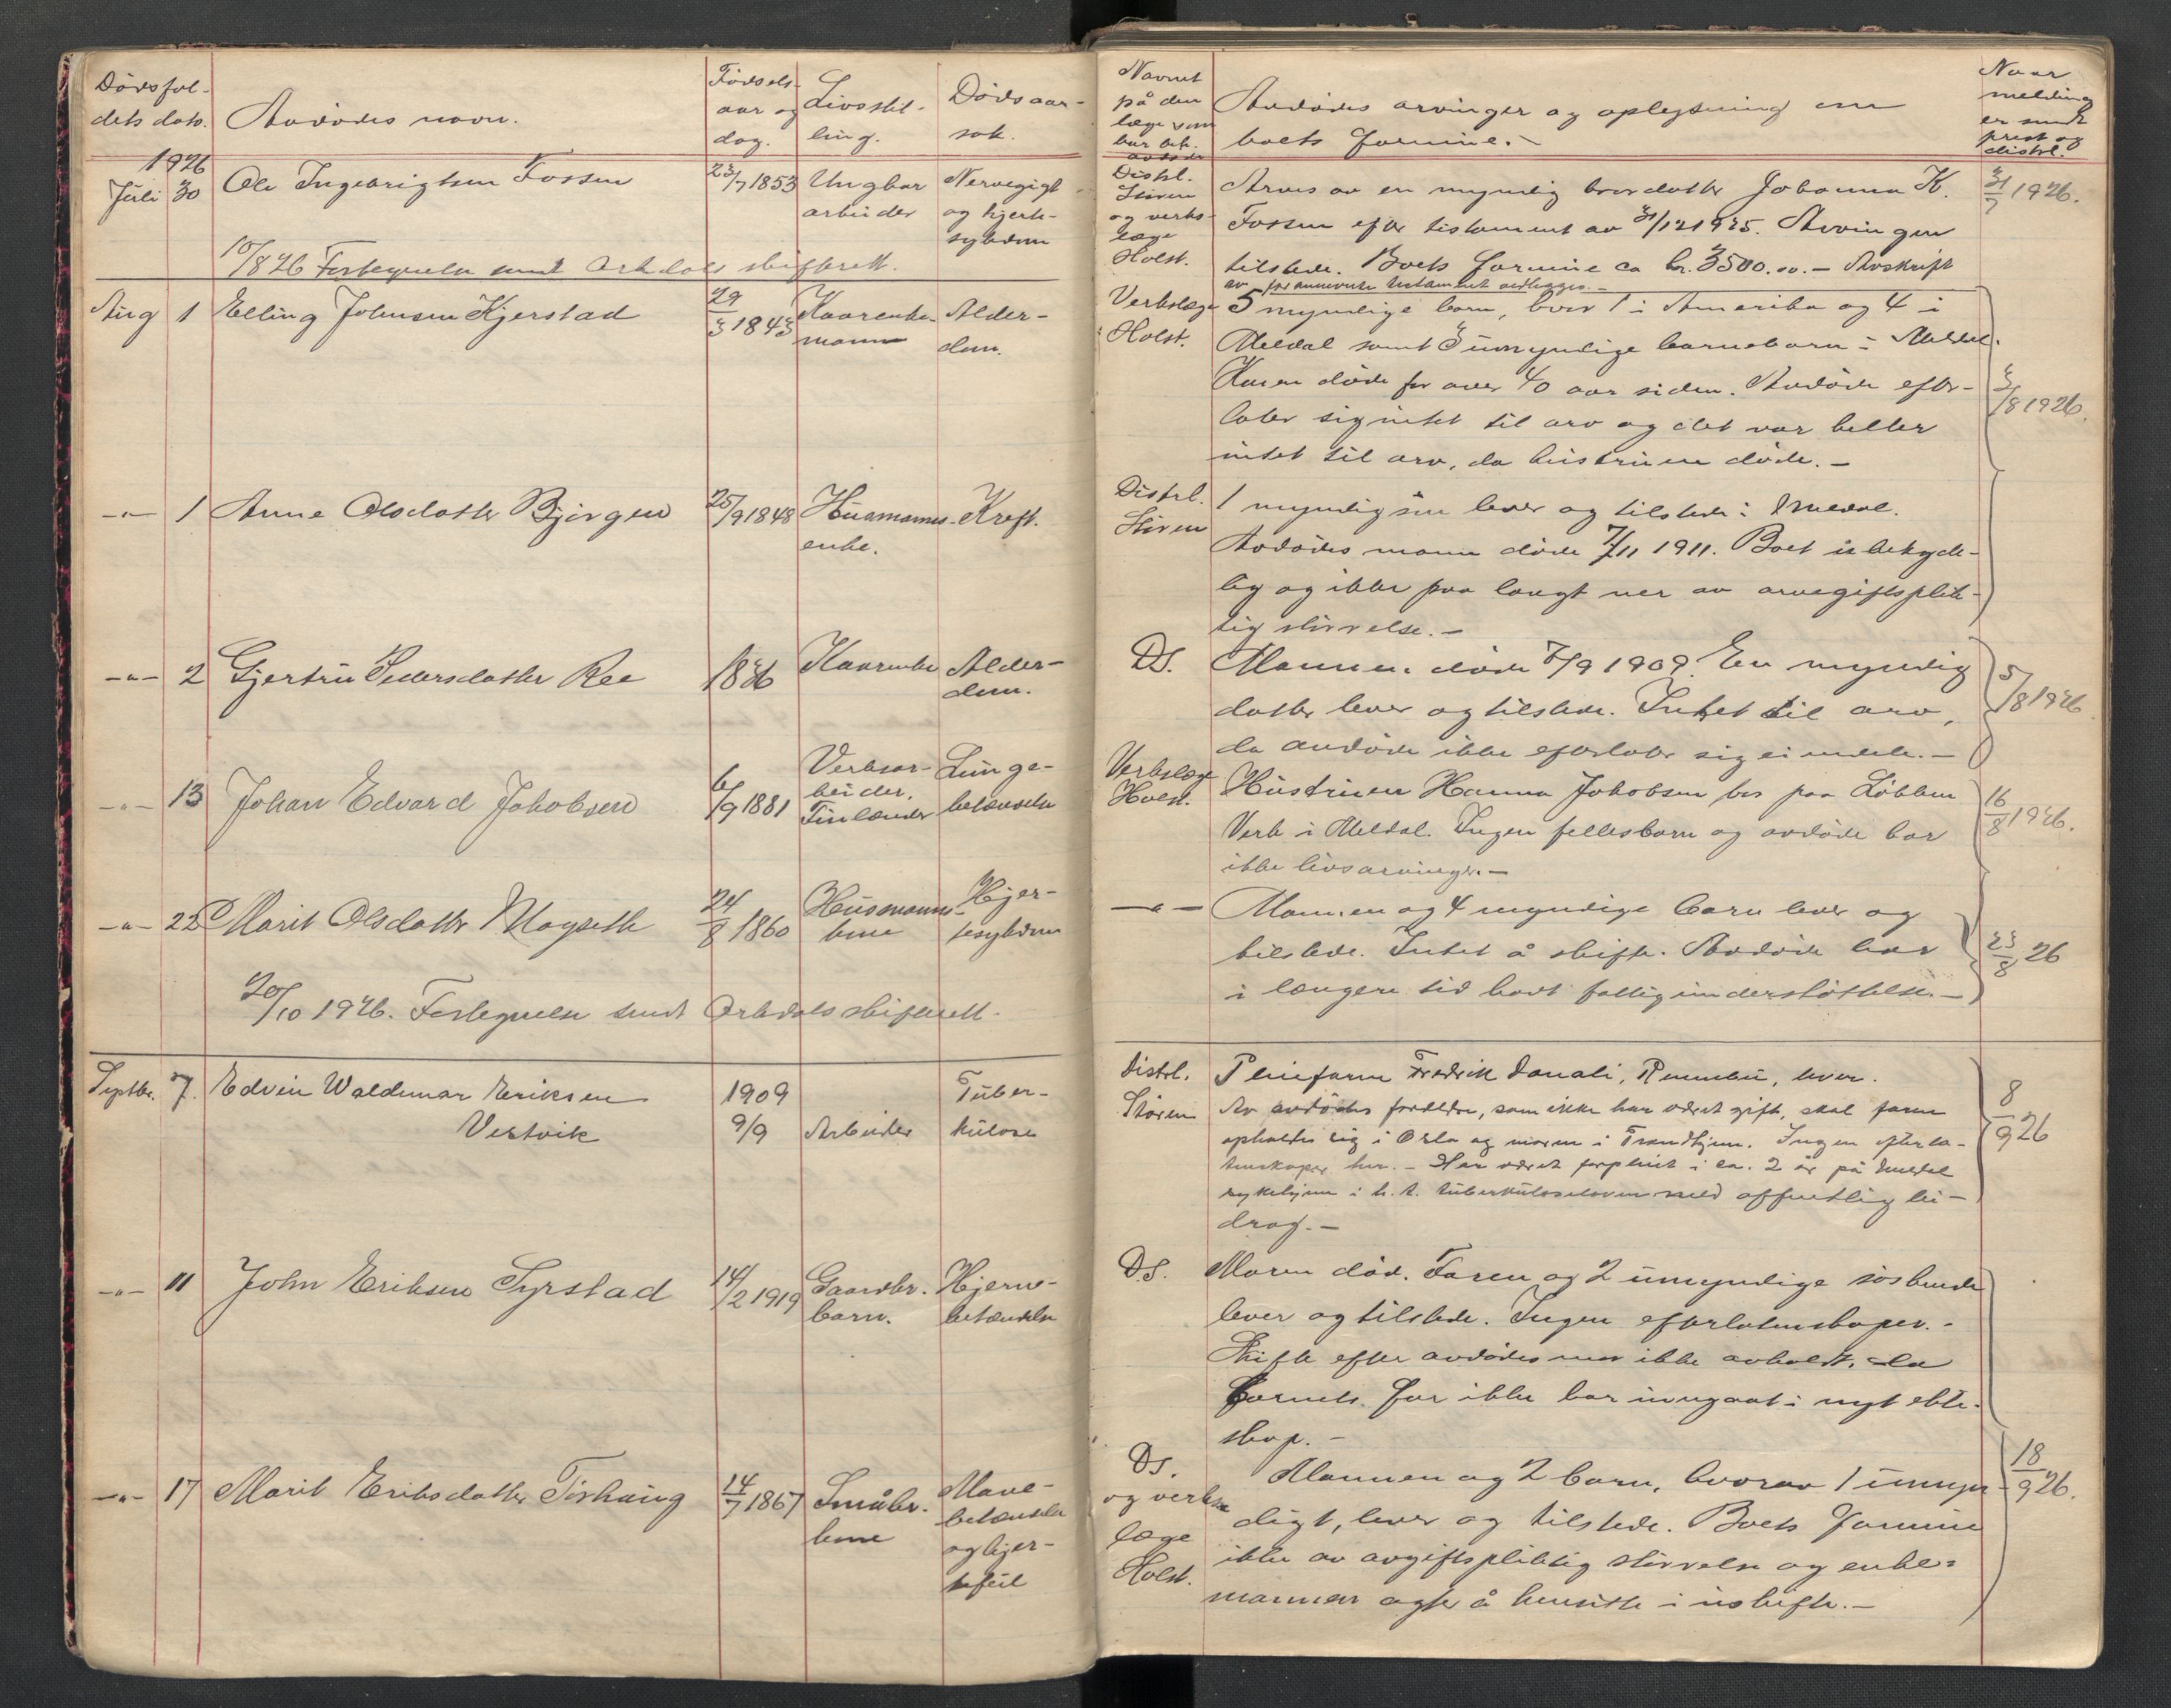 Dødsfal-
dets dato.
Avdødes navn.
Fødsels-
aar og
dag.
Livsstil-
ling.
Dødsaar-
sak.
1926
Juli 30
Ole Ingebrigtsen Fossen
23/7 1853
Ungkar
arbeider
Nervegigt
og hjerte-
sykdom
10/8 26 Fortegnelse sendt Orkdals skifterett.
Aug 1
Elling Johnsen Kjerstad
29/3 1843
Kaarenke-
mann
Alder-
dom.
-"- 1
Anne Olsdatter Bjørgen
25/9 1848
Husmanns-
enke.
Kreft.
-"- 2
Gjertru Pedersdatter Ree
1836
Kaarenke
Alder-
dom.
-"- 13
Johan Edvard Jakobsen
6/9 1881
Verksar-
beider.
Finlænder
Lunge-
betændelse
-"- 22
Marit Olsdatter Mogseth
24/8 1860
Husmanns-
kone
Hjer-
tesykdom
20/10 1926. Fortegnelse sendt Orkdals skifterett.
Septbr. 7.
Edvin Waldemar Eriksen
Vestvik
1909
9/9
Arbeider
Tuber-
kulose
-"- 11
John Eriksen Syrstad
14/2 1919
Gaardbr.
barn.
Hjerne-
betændelse
-"- 17
Marit Eriksdatter Tørhaug
14/7 1867
Småbr.
kone
Mave-
betændelse
og hjer-
tefeil
Navnet
på den
læge som
har beh.
avdøde
Avdødes arvinger og oplysning om
boets formue.-
Naar
melding
er sendt
prest og
distrl.
Distrl.
Støren
og verks-
læge
Holst.
Arves av en myndig brordatter Johanna K.
Fossen efter testament av 31/12 1925. Arvingen
tilstede. Boets formue ca kr. 3500.00.- Avskrift
av forannevnte testament vedlegges.-
31/7 1926.
Verkslæge
Holst.
5 myndige barn, hvor 1 i Amerika og 4 i
Meldal samt 3 umyndige barnebarn i Meldal.
Konen døde for over 40 aar siden. Avdøde efter-
later sig intet til arv og det var heller
intet til arv, da hustruen døde.-
3/8 1926.
Distrl.
Støren
1 myndig søn lever og tilstede i Meldal.
Avdødes mann døde 7/11 1911. Boet ubetyde-
lig og ikke paa langt nær av arvegiftsplik-
tig størrelse.-
DS.
Mannen døde 5/9 1909. En myndig
datter lever og tilstede. Intet til arv,
da avdøde ikke efterlater sig eiendele.-
5/8 1926
Verkslæge
Holst.
Hustruen Hanna Jakobsen bor paa Løkken
Verk i Meldal. Ingen fellesbarn og avdøde har
ikke livsarvinger.-
16/8 1926.
-"-
Mannen og 4 myndige barn lever og
tilstede. Intet å skifte. Avdøde har
i længere tid havt fattigunderstøttelse.-
23/8 26
Distrl.
Støren
Pleiefaren Fredrik Donali, Rennebu, lever.
Av avdødes foreldre, som ikke har været gift, skal faren
opholde sig i Oslo og moren i Trondhjem. Ingen efterla-
tenskaper her.- Har været forpleiet i ca. 2 år på Meldal
sykehjem i h. t. tuberkuloseloven med offentlig bi-
drag.-
8/9 26
DS.
Moren død. Faren og 2 umyndige søskende
lever og tilstede. Ingen efterlatenskaper.-
Skifte efter avdødes mor ikke avholdt, da
barnets far ikke har inngaat i nyt ekte-
skap.-
DS.
og verks-
læge
Holst.
Mannen og 2 barn, hvorav 1 umyn-
digt, lever og tilstede. Boets formue
ikke av avgiftspliktig størrelse og enke-
mannen agter å hensitte i uskifte.-
18/9 26.